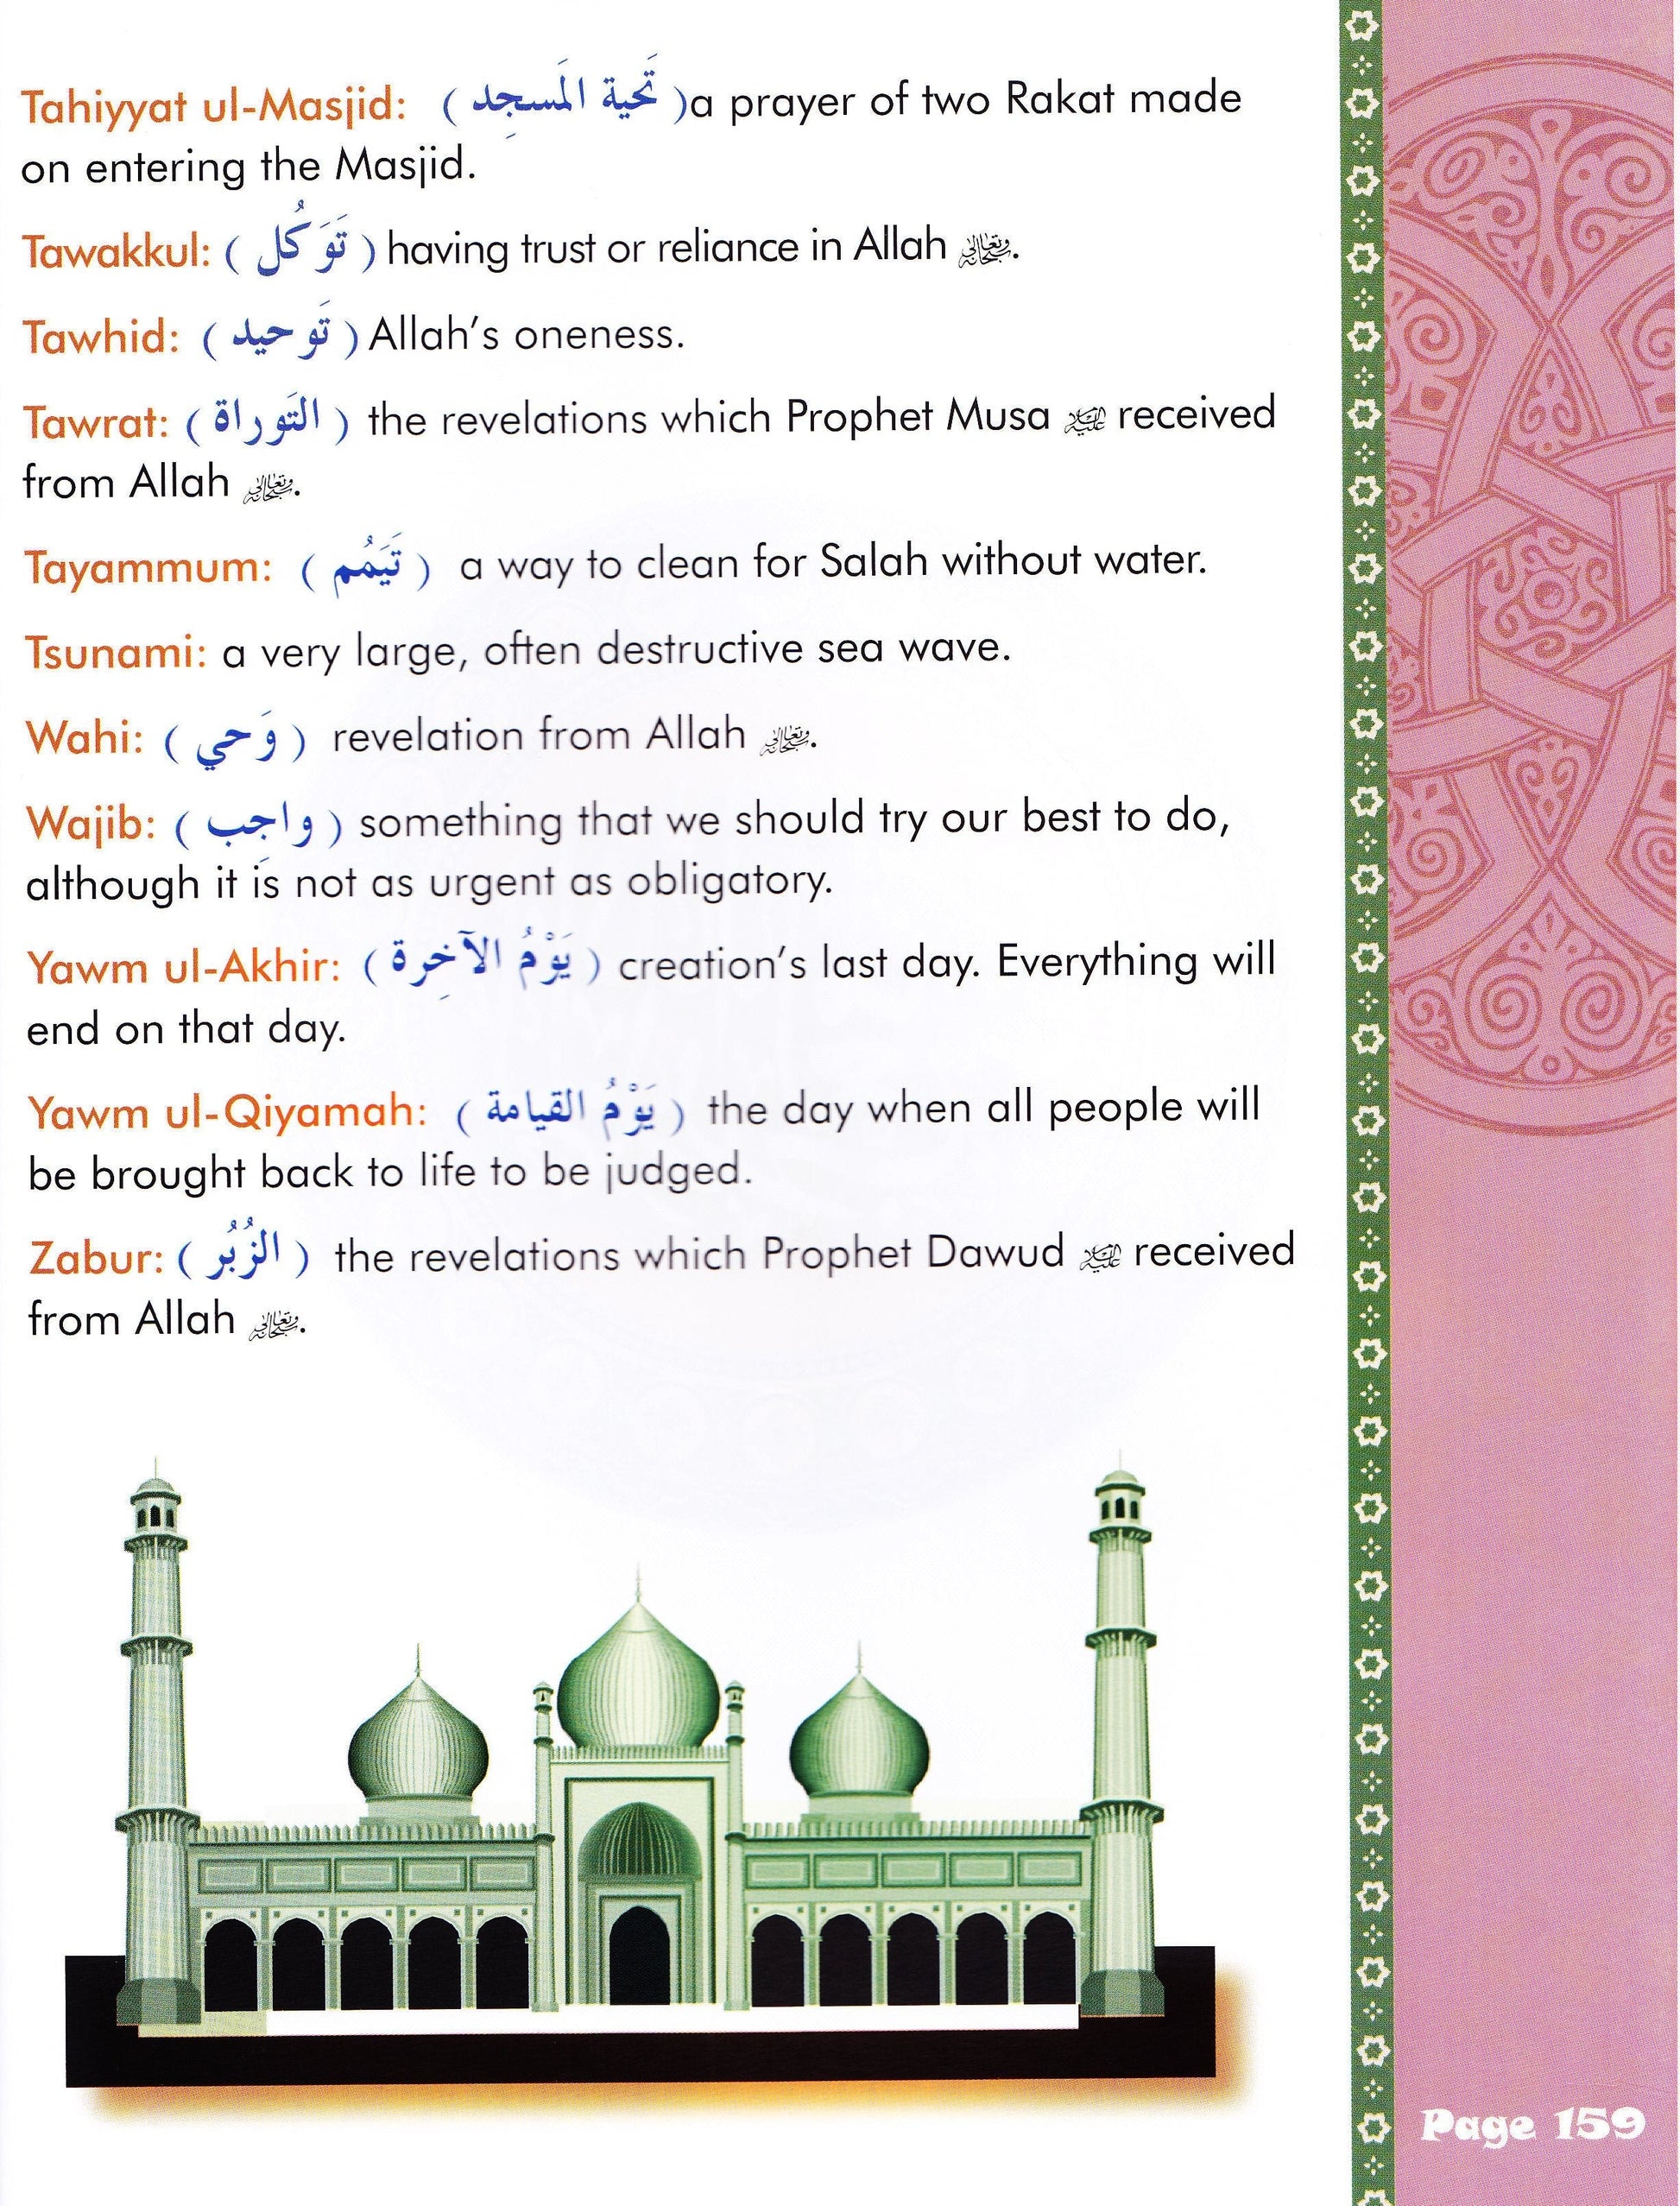 Tahiyyat ul-Masjid: ( تَحية المَسجِد )a prayer of two Rakat made
on entering the Masjid.
Tawakkul: ( تَوَكُل ) having trust or reliance in Allah سبحانه وتعالى.
Tawhid: ( تَوحيد ) Allah's oneness.
Tawrat: ( التَوراة ) the revelations which Prophet Musa عليه السلام received
from Allah سبحانه وتعالى.
Tayammum: ( تَيَمُم ) a way to clean for Salah without water.
Tsunami: a very large, often destructive sea wave.
Wahi: ( وَحي ) revelation from Allah سبحانه وتعالى.
Wajib: ( واجب ) something that we should try our best to do,
although it is not as urgent as obligatory.
Yawm ul-Akhir: ( يَوْمُ الآخِرة ) creation's last day. Everything will
end on that day.
Yawm ul-Qiyamah: ( يَوْمُ القيامة ) the day when all people will
be brought back to life to be judged.
Zabur: ( الزُبُر ) the revelations which Prophet Dawud عليه السلام received
from Allah سبحانه وتعالى.
Page 159